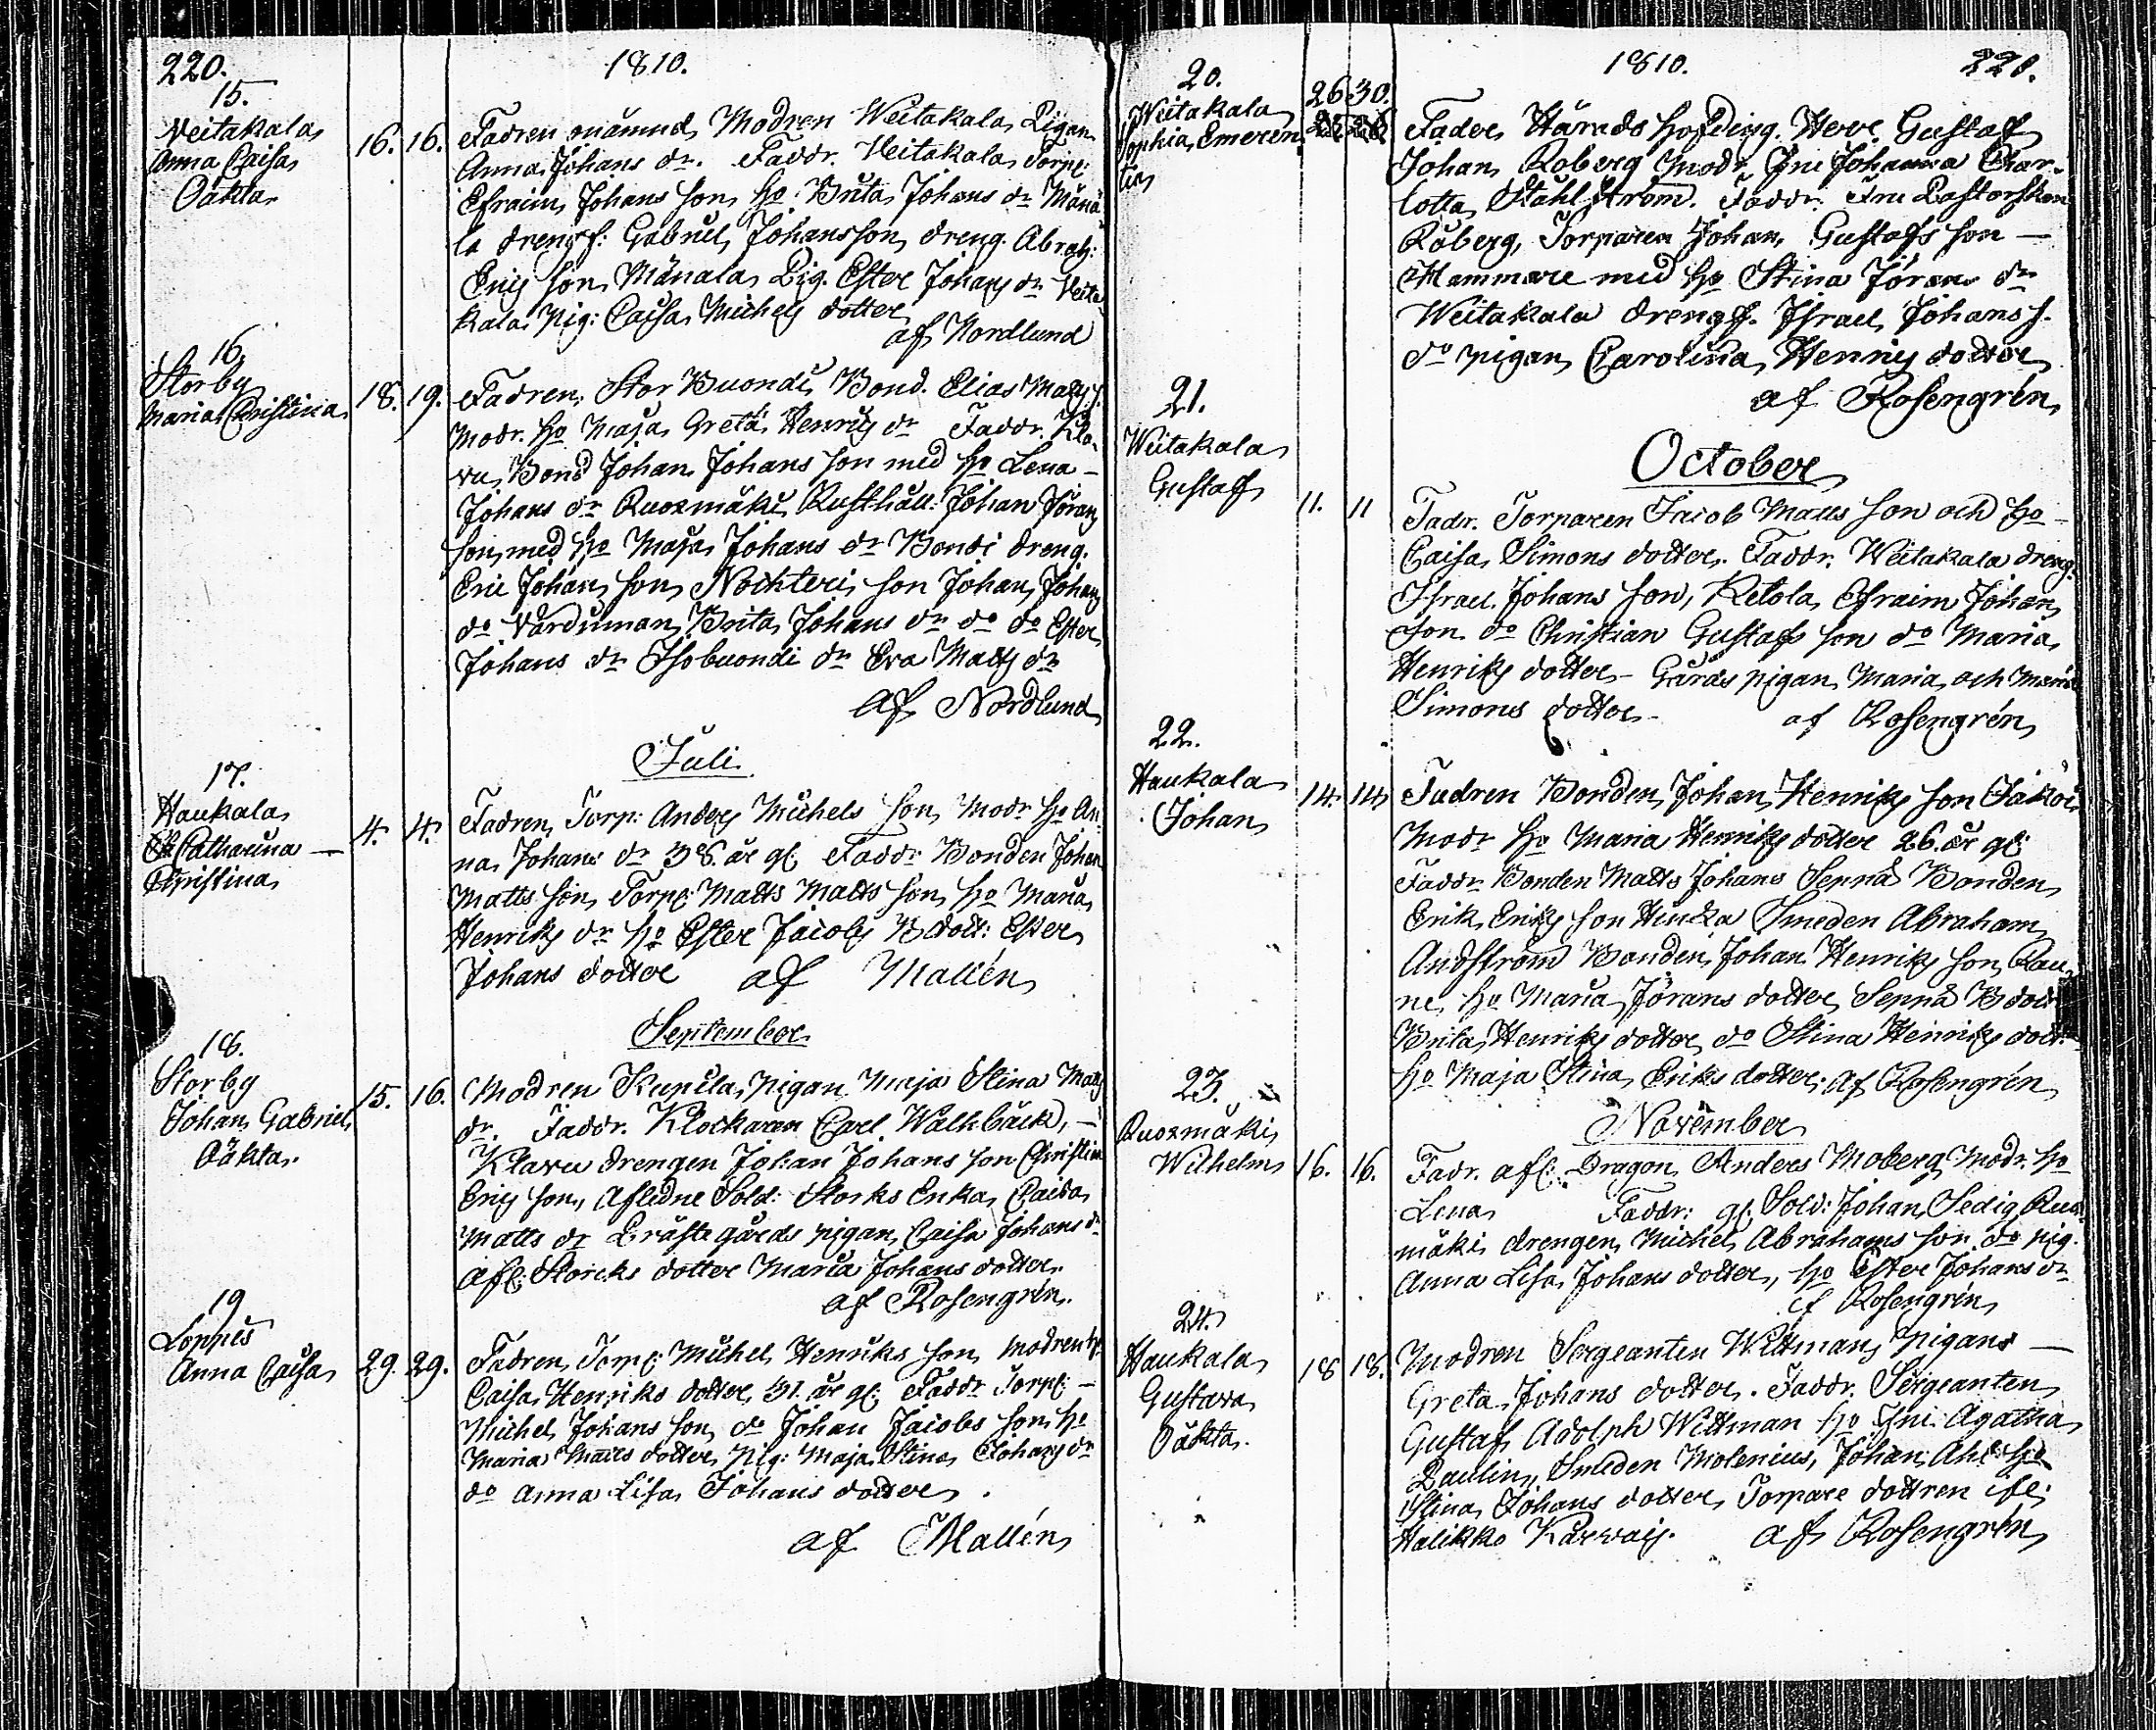 220.
1810.
15.
Veitakala
Anna Caisa
Oäkta
16. 16.
Fadren onämnd, Modren Weitakala Pigan
Anna Johans dr. Faddr. Veitakala Torp:
Efraim Johans son, ho Brita Johans dr Märä
la drengf: Gabriel Johansson, dreng. Abrah:
Erics son, Mänala Pig. Ester Johans dr Veita
kala pig: Caisa Michels dotter
af Nordlund
16.
Storby
Maria Christina
18. 19.
Fadren, Stor Buondi Bond. Elias Matts s.
Modr. ho Maja Greta Henrics dr Faddr. Kla
vu, Bond Johan Johans son med ho Lena -
Johans dr Ruoxmäki Rusthåll: Johan Jörans
son, med ho Maja Johans dr Bondi dreng.
Eric Johans son, Nochteri son Johan, Johans
do Vårduman, Brita Johans dr do do Ester
Johans dr Isobuondi dr Eva Matts dr
af Nordlund
Juli.
17.
Haukala
Catharina —
Christina
4. 4.
Fadren, Torp: Anders Michels son, Modr ho An
na Johans dr 38. år gl. Faddr: Bonden Johan
Matts son, Torp: Matts Matts son, ho Maria
Henriks dr ho Ester Jacobs B dott: Ester
Johans dotter af Mallén
September
18.
Storby
Johan Gabriel
Oäkta.
15. 16.
Modren Kupila pigan Maja Stina Matts
dr. Faddr. Klockaren Carl Wallbäck, -
Klavu drengen Johan Johans son Christian
Erics son, Aflidne Sold: Storks Enka, Caisa
Matts dr Prästegårds pigan, Caisa Johans dr
Afl: Storcks dotter Maria Johans dotter.
af Rosengrén.
19
Loppis
Anna Caisa
29. 29.
Fadren, Torp: Michel Henriks son, modren ho
Caisa Henriks dotter, 31. år gl: Faddr Torp: -
Michel Johans son, do Johan Jacobs son, ho
Maria Matts dotter, pig: Maja Stina Johans dr
do Anna Lisa Johans dotter.
af Mallén
1810.
221.
20.
Weitakala
Sophia Emeren
tia
26 30.
Fader, Härads höfding. Herr Gustaf
Johan Roberg Modr. Fru Johanna Char-
lotta Stahlström. Faddr. Fru Pastorskan
Roberg, Torparen Johan Gustafs son —
Hammare med ho Stina Jörans dr
Weitakala drengf. Israel Johans s.
do pigan, Carolina Henrics dotter
af Rosengrén
21.
October
Weitakala
Gustaf
11. 11
Fadr. Torparen Jacob Matts son och ho -
Caisa Simons dotter. Faddr. Weitakala dreng.
Israel Johans son, Ketola Efraim Johans
son do Christian Gustafs son do Maria
Henriks dotter - Gårds pigan, Maria och Maria
Simons dotter - af Rosengrén
22.
Haukala
Johan
14. 14.
Fadren Bonden, Johan Henriks son Jakoi
Modr ho Maria Henriks dotter 26. år gl:
Faddr Bonden Matts Johans Seppä Bonden
Erik Eriks son Smeden Abraham
Andström Bonden Johan Henriks son
ho Maria Jörans dotter, Seppä B dott
Brita Henriks dotter, do Stina Henriks dott:
ho Maja Stina Eriks dotter. Af Rosengrén
November
23.
Ruoxmäki
Wilhelm
16. 16.
Fadr. afl: Dragon Anders Moberg, Modr. ho
Lena Faddr: gl: Sold: Johan Sedig Ruox
mäki drengen Michel Abrahams son do pig.
Anna Lisa Johans dotter, ho Ester Johans dr
af Rosengrén
24.
Haukala
Gustava
Oäkta.
18 18.
Modren Sergeanten Wittmans pigans —
Greta Johans dotter. Faddr. Sergeanten
Gustaf Adolph Wittman ho Fru Agatha
Paulin, Smeden Molenius, Johan Ahl: ho
Stina Johans dotter, Torpare dottren
Halikko af Rosengrén